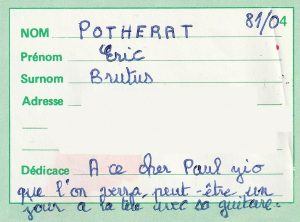 81/04
NOM POTHERAT
Prénom Eric
Surnom Brutus
Adresse
Dédicace A ce cher Paul gio
que l'on verra peut-être un
jour à la télé avec sa guitare.